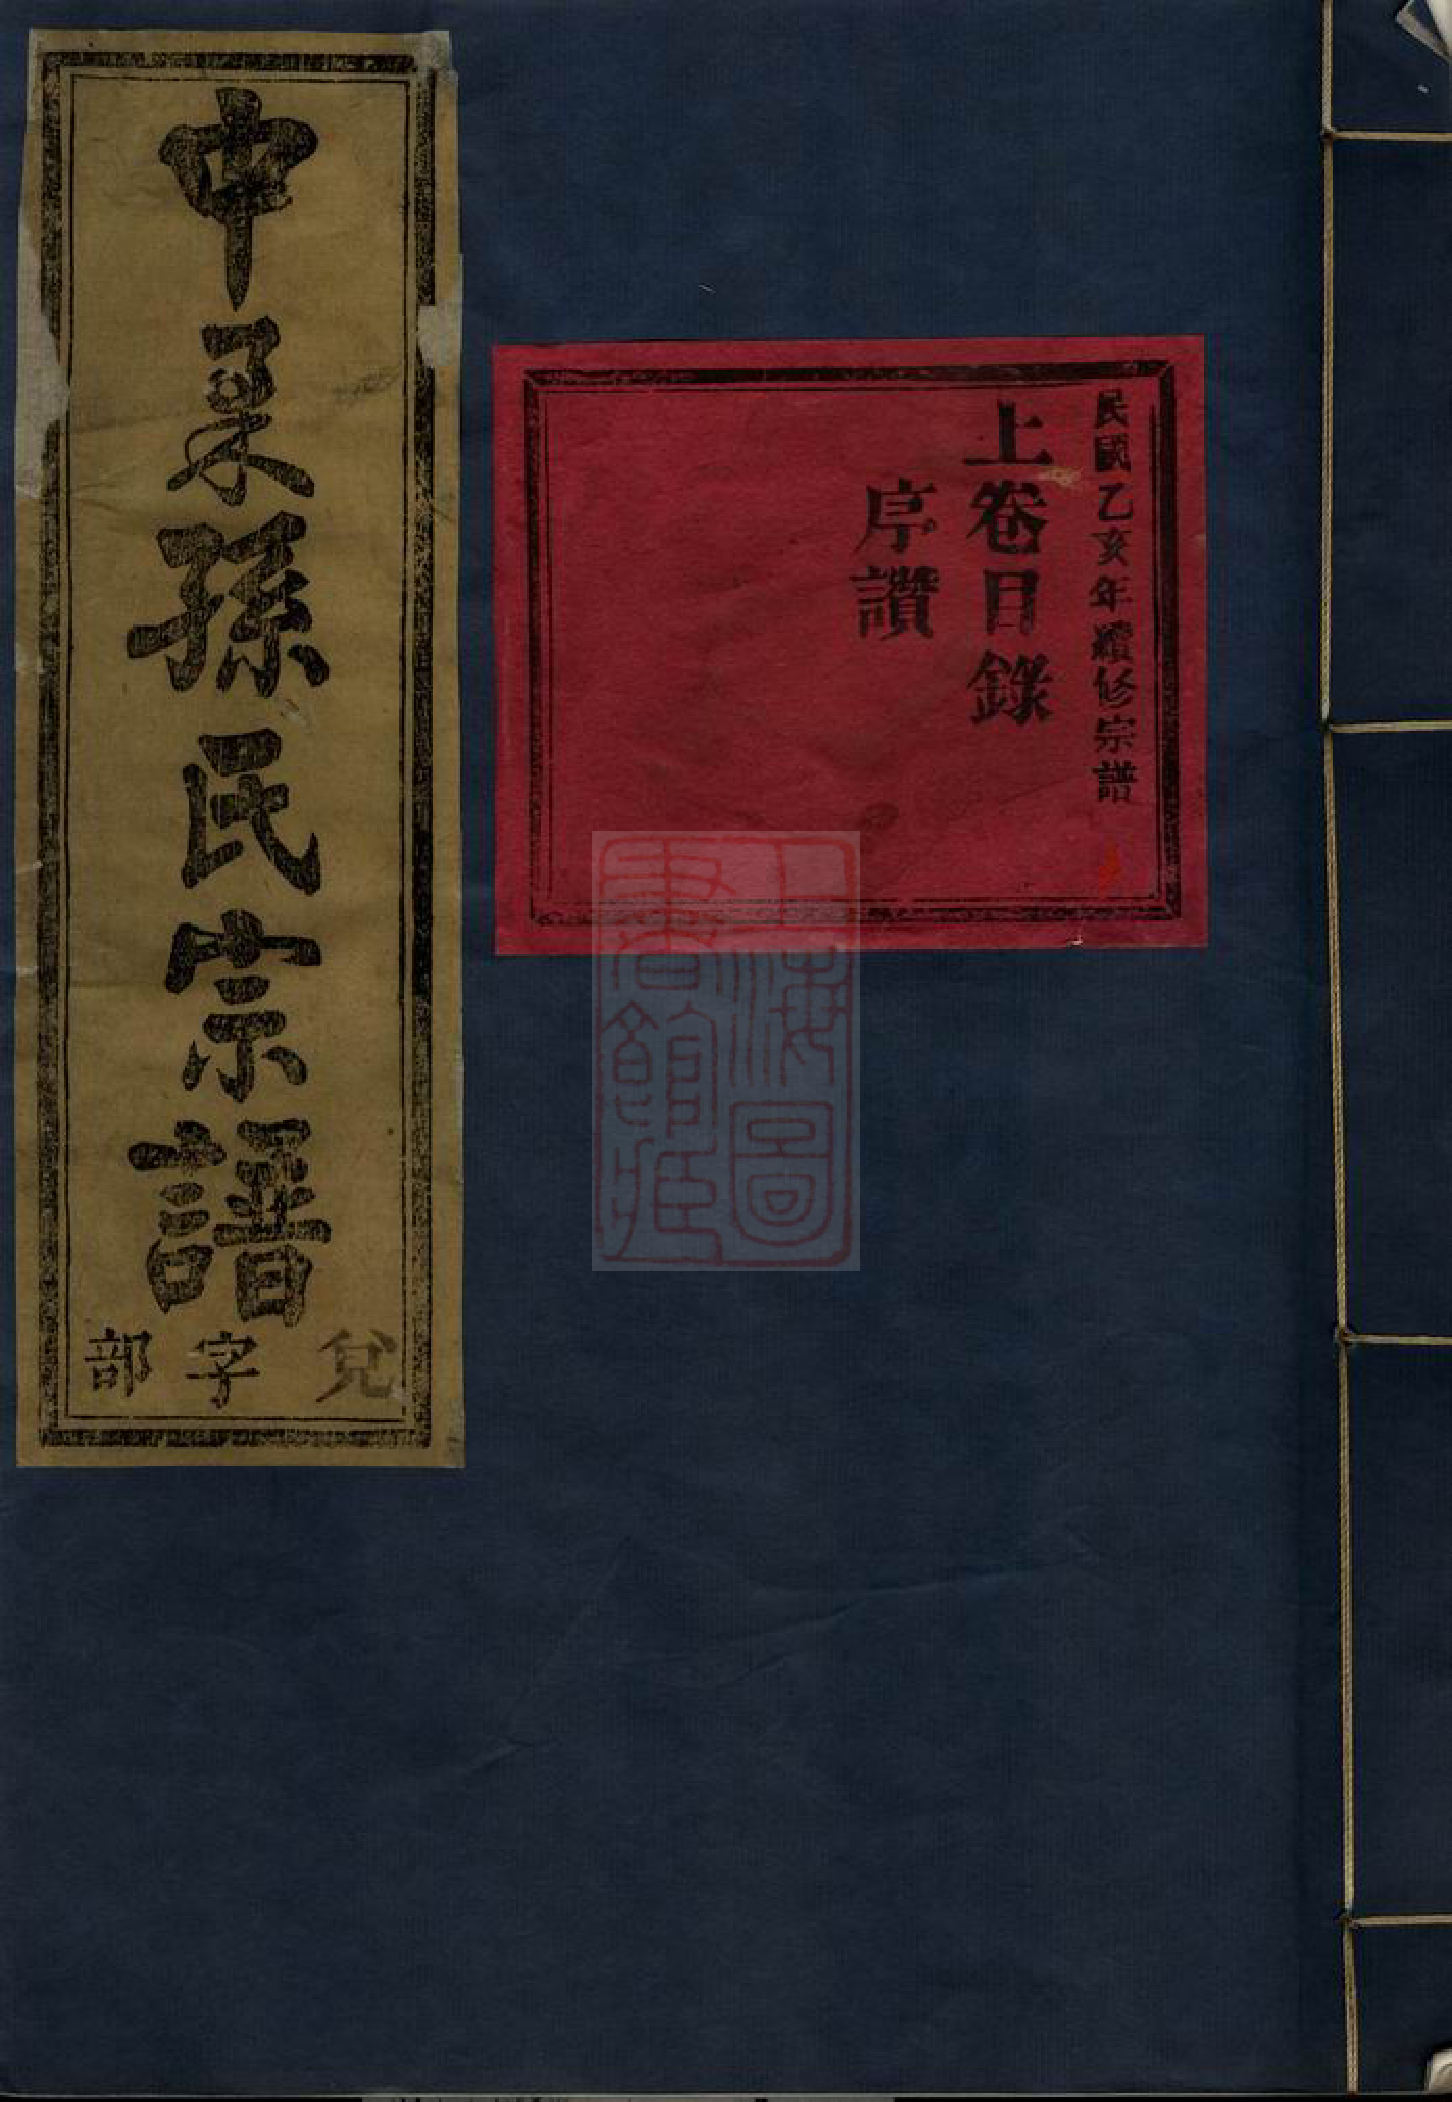 民國乙亥年續修宗譜
上卷目錄
序讚
中孫氏宗譜
兌字部
上海圖
書館藏